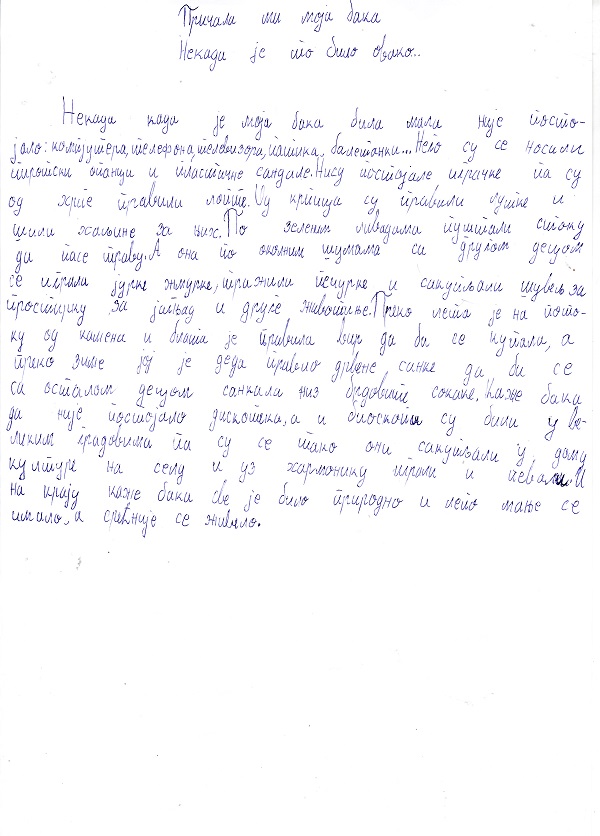 Причала ми моја бака
Некада је то било овако..
Некада када је моја бака била мала није посто-
јало: компјутера, телефона, телевизора, патика, балетанки... Него су се носили
пиротски опанци и пластичне сандале. Нису постојале играчке па су
од крпе правили лопте. Од крпица су правили лутке и
шили хаљине за њих. По зеленим ливадама пуштали стоку
да пасе траву. А она по околним шумама са другом децом
се играла јурке жмурке, тражили печурке и сакупљали шушељ за
простирку за јагњад и друге животиње. Преко лета је на пото-
ку од камена и блата је правила вир да би се купала, а
преко зиме јој је деда правио дрвене санке да би се
са осталом децом санкала низ брдовите сокаке. Каже бака
да није постојало дискотека, а и биоскопи су били у ве-
ликим градовима па су се тако они сакупљали у дому
културе на селу и уз хармонику играли и певали. И
на крају каже бака све је било природно и лепо мање се
имало, а срећније се живело.